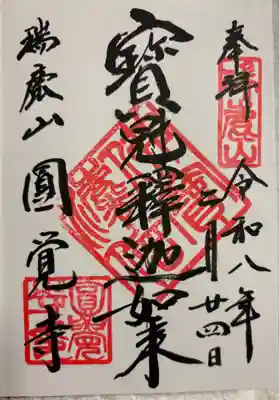 奉拝
令和八年二月廿四日
寶冠釋迦如来
瑞鹿山圓覚寺